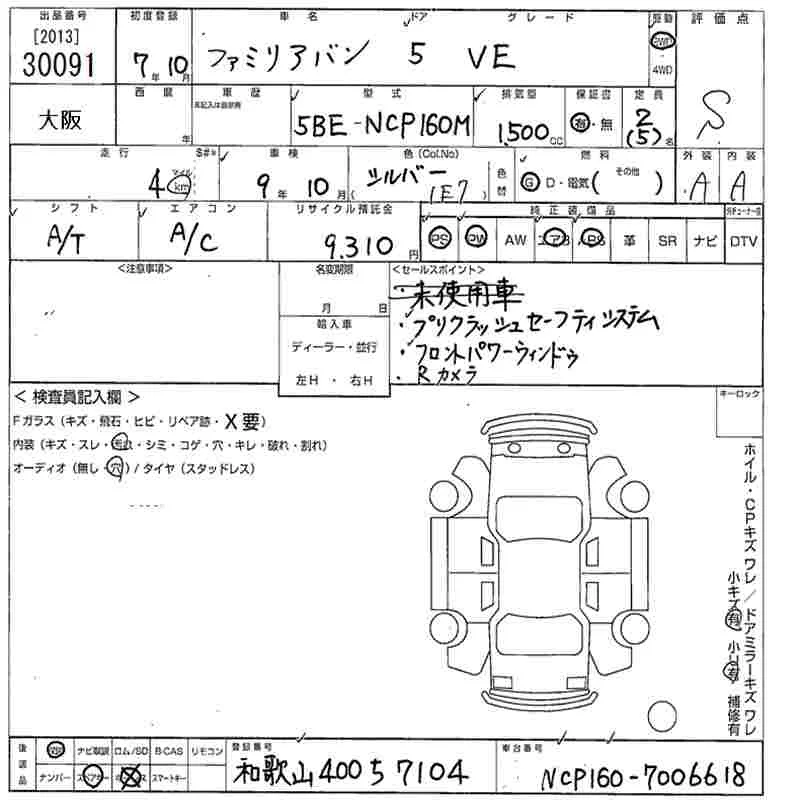 出品番号 初度登録 車名 ドア グレード 駆動 評価点
[2013]
30091 7年 10月 ファミリアバン 5 VE 2WD 4WD S
西暦 車歴 型式 排気量 保証書 定員
大阪 年 5BE-NCP160M 1500cc 有・無 2(5)名
走行 S#* 車検 色(Col.No) 燃料 外装 内装
マイル
4 km 9年 10月 ( シルバー 1E7 ) 色替 G D・電気( その他 ) A A
シフト エアコン リサイクル預託金 純正装備品
A/T A/C 9,310円 PS PW AW エアB ABS 革 SR ナビ DTV
<注意事項> 名変期限 <セールスポイント>
月 日
・未使用車
輸入車
・プリクラッシュセーフティシステム
ディーラー・並行
・フロントパワーウィンドゥ
左H・右H
・Rカメラ
< 検査員記入欄 > キーロック
Fガラス(キズ・飛石・ヒビ・リペア跡・X要)
内装(キズ・スレ・汚れ・シミ・コゲ・穴・キレ・破れ・割れ)
オーディオ(無し・穴)/タイヤ(スタッドレス)
ホイル・CPキズ ワレ / ドアミラーキズ ワレ
小キズ有 小凹有 補修有
後送品 ナビ取説 ロム/SD B-CAS リモコン 登録番号 車台番号
ナンバー スペアキー スマートキー 和歌山400ち7104 NCP160-7006618